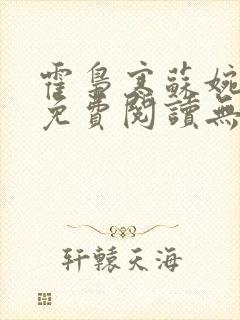 霍梟寒蘇婉
免費閱讀無
轩辕天海